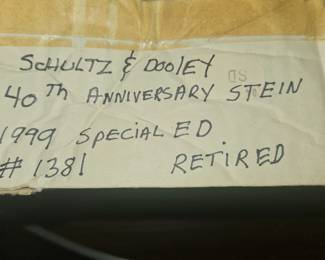 SCHULTZ & DOOLEY
40TH ANNIVERSARY STEIN
1999 SPECIAL ED
# 1381 RETIRED